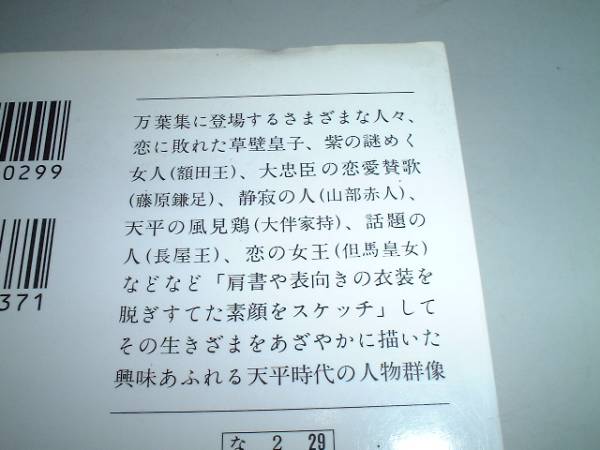 万葉集に登場するさまざまな人々、
恋に敗れた草壁皇子、紫の謎めく
女人(額田王)、大忠臣の恋愛賛歌
(藤原鎌足)、静寂の人(山部赤人)、
天平の風見鶏(大伴家持)、話題の
人(長屋王)、恋の女王(但馬皇女)
などなど「肩書や表向きの衣装を
脱ぎすてた素顔をスケッチ」して
その生きざまをあざやかに描いた
興味あふれる天平時代の人物群像
0299
371
な 2 29